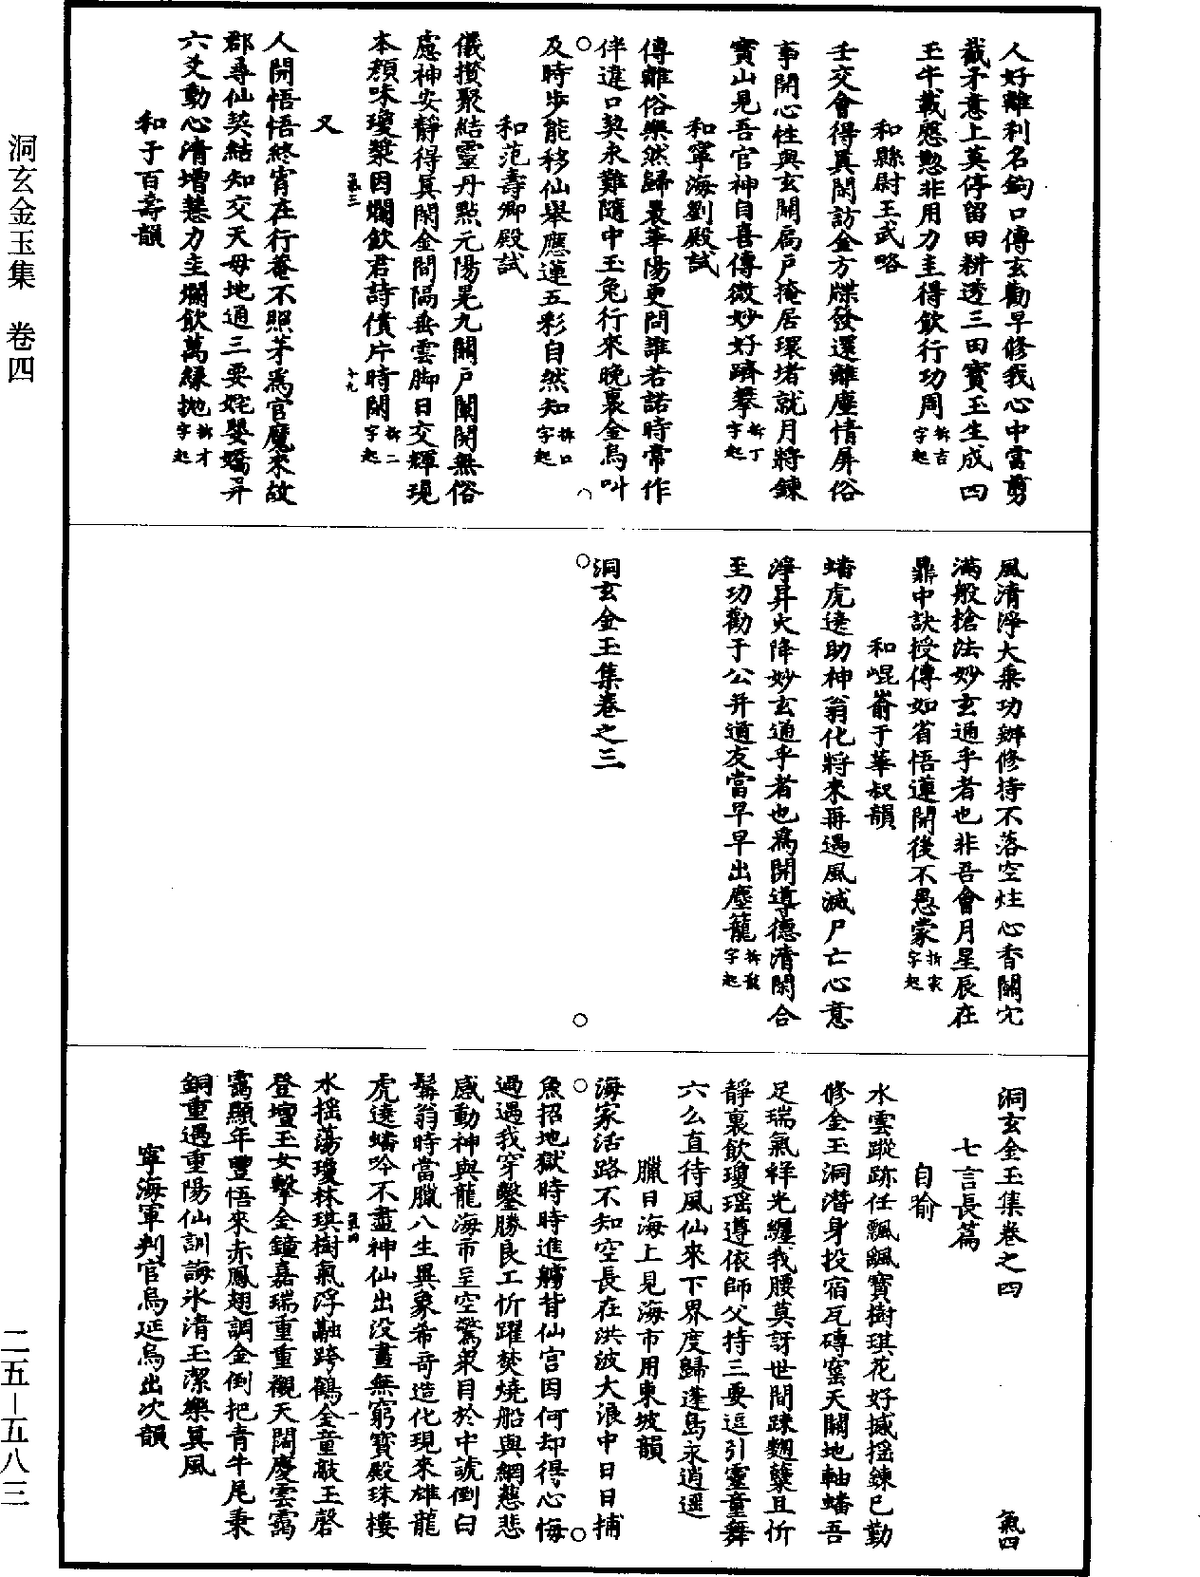 洞玄金玉集 卷四
人好離利名鉤口傳玄勸早修我心中當剪
截矛意上莫停留田耕透三田寶玉生成四
王牛載應懃非用力圭得飲行功周拆吉字起
和縣尉王武略
壬交會得真閑訪金方牒發還離塵情屏俗
事開心性與玄關扃戶掩居環堵就月將鍊
寶山見吾官神自喜傳微妙好躋攀拆丁字起
和寧海劉殿試
傳離俗樂然歸裊華陽更問誰若諾時常作
伴違口契永難隨中玉兔行來晚裏金烏叫
及時步能移仙舉應運五彩自然知拆口字起
和范壽卿殿試
儀攢聚結靈丹點元陽晃九關戶闡開無俗
慮神安靜得真閑金間隔垂雲脚日交輝現
本顏味瓊漿因爛飲君詩債片時閑拆二字起
氣三
十九
又
人開悟悟終宵在行菴不照茅焉官魔來故
郡尋仙契結知交天母地通三要姹嬰嬌昇
六爻動心清增慧力圭爛飲萬緣拋拆才字起
和于百壽韻
風清淨大乘功辦修持不落空炷心香關宂
滿般搶法妙玄通乎者也非吾會月星辰在
鼎中訣授傳如省悟蓮開後不愚蒙拆家字起
和崐嵛于華叔韻
蟠虎遶助神翁化將來再遇風滅尸亡心意
淨昇火降妙玄通乎者也為開導德清閑合
至功勸于公并道友當早早出塵籠拆龍字起
洞玄金玉集卷之三
洞玄金玉集卷之四
氣四
七言長篇
自喻
水雲蹤跡任飄颻寶樹琪花好撼搖鍊已勤
修金玉洞潛身投宿瓦磚窰天關地軸蟠吾
足瑞氣祥光纏我腰莫訝世間踈麴糵且忻
靜裏飲瓊瑤遵依師父持三要逗引靈童舞
六么直待風仙來下界度歸蓬島永逍遥
臘日海上見海市用東坡韻
海家活路不知空長在洪波大浪中日日捕
魚招地獄時時進艣背仙宫因何却得心悔
過遇我穿鑿勝良工忻躍焚燒船與網慈悲
感動神與龍海市呈空驚衆目於中號倒白
髯翁時當臘八生異象希奇造化現來雄龍
虎遶蟠吟不盡神仙出没畫無窮寶殿珠樓
氣四
一
水搖蕩瓊林琪樹氣浮融跨鶴金童敲玉磬
登壇玉女擊金鐘嘉瑞重重觀天闊慶雲靄
靄顯年豐悟來赤鳳翅調金倒把青牛尾秉
銅重遇重陽仙訓誨氷清玉潔樂真風
寧海軍判官烏延烏出次韻
二五—五八三